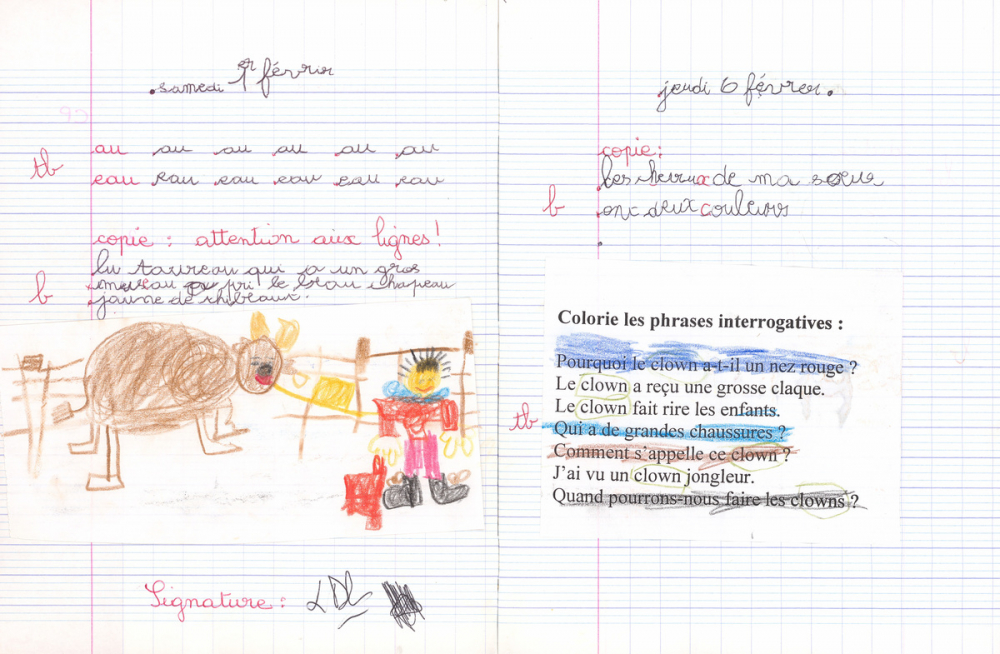 samedi 1er février
au au au au au au
tb
eau eau eau eau eau eau
copie : attention aux lignes !
lu taureau qui a un gros
b
museau pri le beau chapeau
jaune de
Signature : LDL
jeudi 6 février.
copie :
les de ma sœur
b
ont deux couleurs
Colorie les phrases interrogatives :
Pourquoi le clown a-t-il un nez rouge ?
Le clown a reçu une grosse claque.
Le clown fait rire les enfants.
tb
Qui a de grandes chaussures ?
Comment s'appelle ce clown ?
J'ai vu un clown jongleur.
Quand pourrons-nous faire les clowns ?